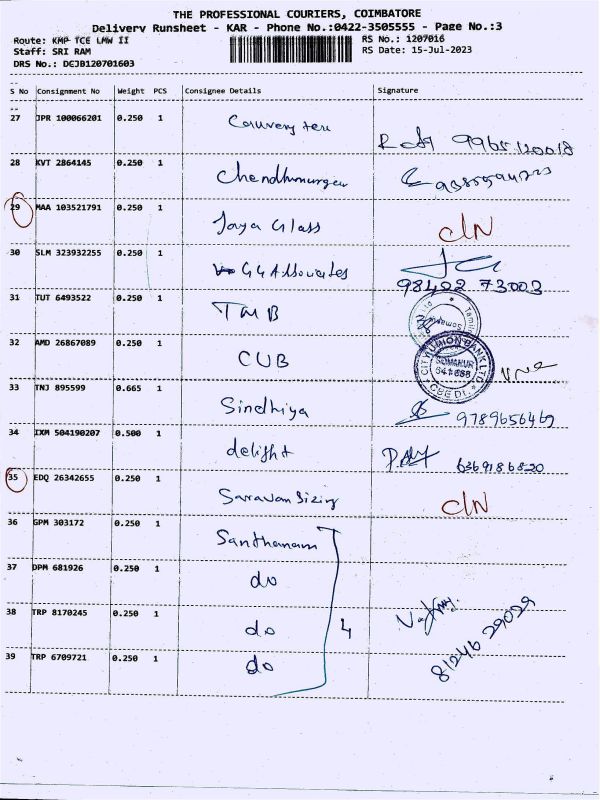 THE PROFESSIONAL COURIERS, COIMBATORE
Delivery Runsheet - KAR - Phone No.:0422-3505555 - Page No.:3
Route: KMP TCE LMW II RS No.: 1207016
Staff: SRI RAM RS Date: 15-Jul-2023
DRS No.: DEJB120701603
S No Consignment No Weight PCS Consignee Details Signature
27 JPR 100066201 0.250 1
28 KVT 2864145 0.250 1 Chendhmurgan
29 MAA 103521791 0.250 1 Jaya Glass CIN
30 SLM 323932255 0.250 1 GG Associates
98402 73003
31 TUT 6493522 0.250 1 TMB
32 AMD 26867089 0.250 1 CUB CITY UNION BANK LTD SOMANUR 641668 CBE DT.
33 TNJ 895599 0.665 1 Sindhiya 9789656469
34 IXM 504190207 0.500 1 delight 6369186820
35 EDQ 26342655 0.250 1 Saravan Sizing CIN
36 GPM 303172 0.250 1 Santhanam
37 DPM 681926 0.250 1 do
38 TRP 8170245 0.250 1 do 4
39 TRP 6709721 0.250 1 do 81246 29029